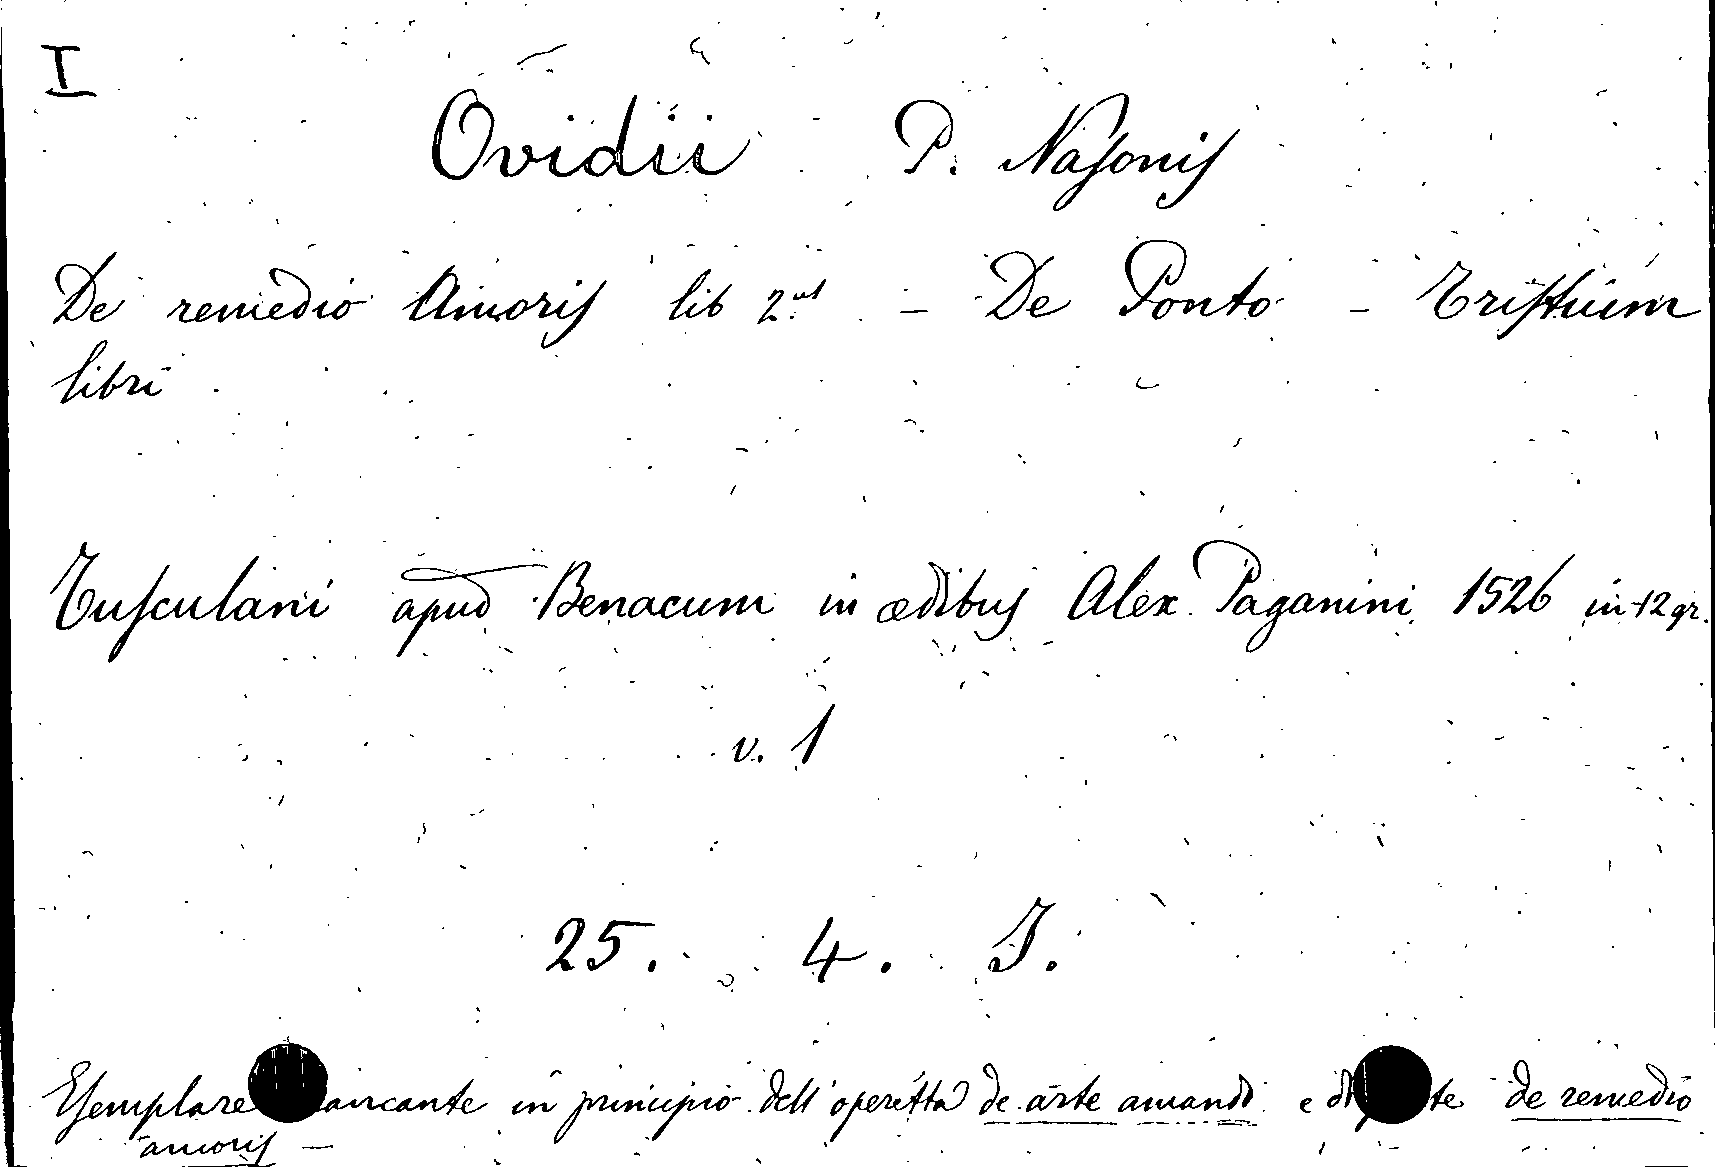 I
Ovidii P. Nasonis
De remedio Amoris lib 2.us - De Ponto - Tristium
libri
Tusculani apud Benacum in ædibus Alex. Paganini 1526 in-12 gr.
v. 1
25. 4. J.
Esemplare mancante in principio dell'operetta de arte amandi e di parte de remedio
amoris —